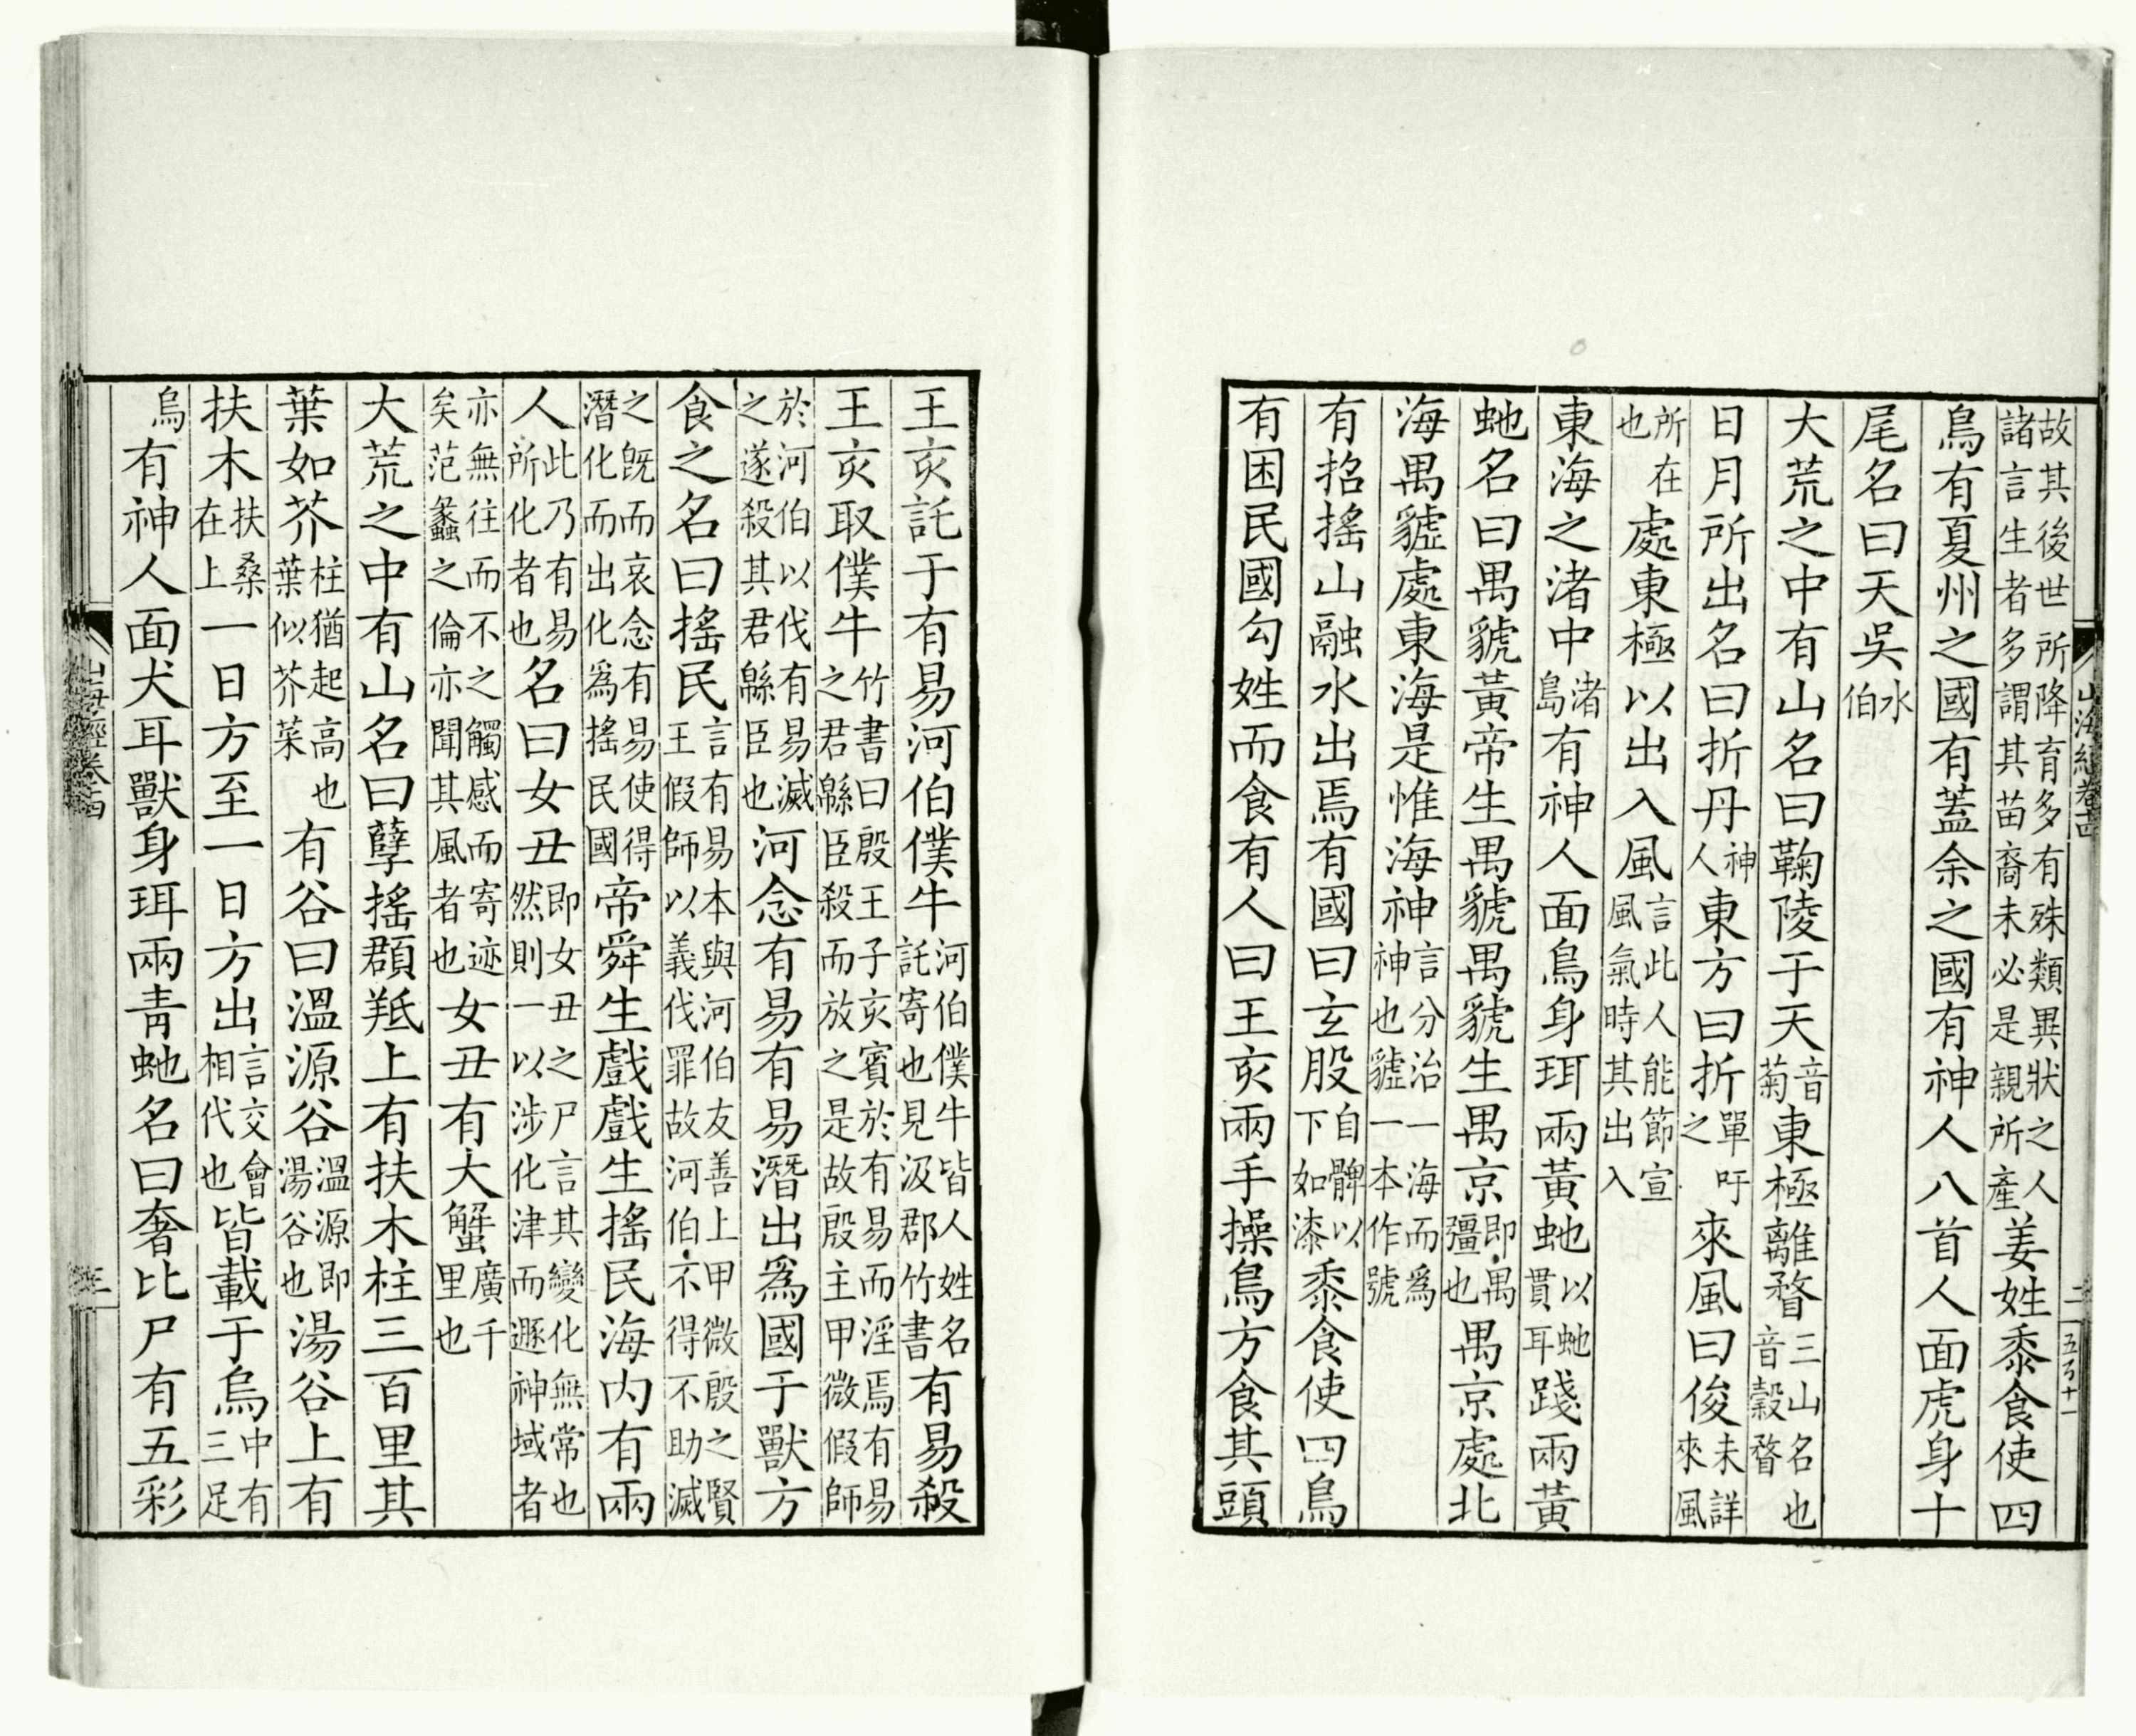 故其後世所降育多有殊類異狀之人諸言生者多謂其苗裔未必是親所產姜姓黍食使四
鳥有夏州之國有蓋余之國有神人八首人面虎身十
尾名曰天吳水伯
大荒之中有山名曰鞠陵于天音菊東極離瞀三山名也音穀瞀
日月所出名曰折丹神人東方曰折單吁之來風曰俊未詳來風
所在也處東極以出入風言此人能節宣風氣時其出入
東海之渚中渚島有神人面鳥身珥兩黃虵以虵貫耳踐兩黃
虵名曰禺䝞黃帝生禺䝞禺䝞生禺京即禺彊也禺京處北
海禺䝞處東海是惟海神言分治一海而為神也䝞一本作號
有招搖山融水出焉有國曰玄股自髀以下如漆黍食使四鳥
有困民國勾姓而食有人曰王亥兩手操鳥方食其頭
山海經卷十四
二
五百十一
王亥託于有易河伯僕牛河伯僕牛皆人姓名託寄也見汲郡竹書有易殺
王亥取僕牛竹書曰殷王子亥賓於有易而淫焉有易之君緜臣殺而放之是故殷主甲微假師
於河伯以伐有易滅之遂殺其君緜臣也河念有易有易潛出為國于獸方
食之名曰搖民言有易本與河伯友善上甲微殷之賢王假師以義伐罪故河伯不得不助滅
之既而哀念有易使得潛化而出化為搖民國帝舜生戲戲生搖民海內有兩
人此乃有易所化者也名曰女丑即女丑之尸言其變化無常也然則一以涉化津而遯神域者
亦無往而不之觸感而寄迹矣范蠡之倫亦聞其風者也女丑有大蟹廣千里也
大荒之中有山名曰孽搖頵羝上有扶木柱三百里其
葉如芥柱猶起高也葉似芥菜有谷曰溫源谷溫源即湯谷也湯谷上有
扶木扶桑在上一日方至一日方出言交會相代也皆載于烏中有三足
烏有神人面犬耳獸身珥兩青虵名曰奢比尸有五彩
山海經卷十四
三